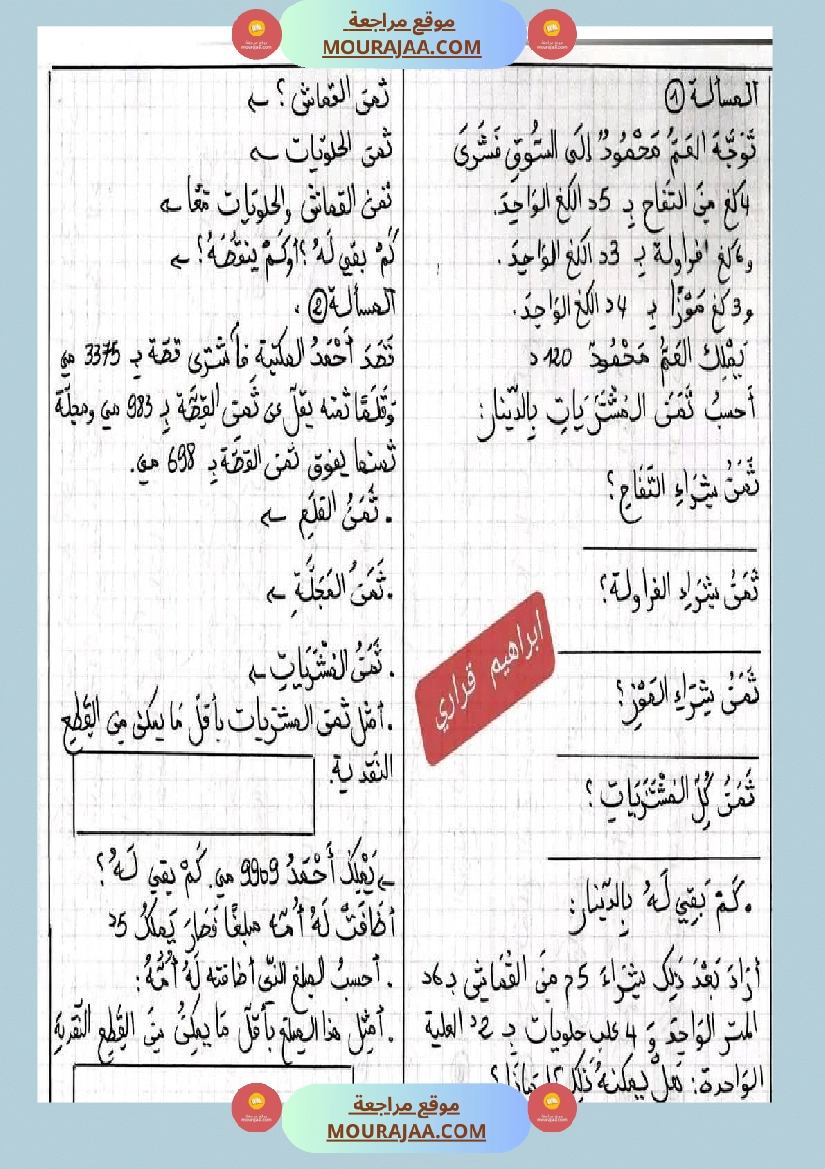 موقع مراجعة
MOURAJAA.COM
المسألة ①
تَوَجَّهَ العَمُّ مَحْمُودٌ إلَى السُّوقِ فَشَرَى
4كغ مِنَ التُّفاحِ بِـ 5د الكغ الوَاحِدَ.
و6كغ فراولة بِـ 3د الكغ الوَاحِدَ.
و3كغ مَوْزًا بِـ 4د الكغ الوَاحِدَ.
يَمْلِكُ العَمُّ مَحْمُودٌ 120د
أحسبُ ثَمَنَ المُشْتَرَيَاتِ بِالدِّينَارِ:
ثَمَنُ شِرَاءِ التُّفاحِ؟
ثَمَنُ شِرَاءِ الفراولة؟
ثَمَنُ شِرَاءِ المَوْزِ؟
ثَمَنُ كُلِّ المُشْتَرَيَاتِ؟
. كَمْ بَقِيَ لَهُ بِالدِّينَارِ:
أرَادَ بَعْدَ ذَلِكَ شِرَاءَ 5م مِنَ القُمَاشِ بِـ 6د
المتر الوَاحِدَ وَ 4 علب حلويات بِـ 2د العلبة
الوَاحدة: هَلْ يمكنهُ ذَلِكَ؟ لِمَاذَا؟
ثمن القماش؟
ثمن الحلويات
ثمن القماش والحلويات مَعًا
كَمْ بقي لَهُ؟ أوكَمْ ينقصُهُ؟
المسألة ②.
قَصَدَ أَحْمَدُ المكتبة فأشترى قصّة بِـ 3375 مي
وَقَلَمًا ثمنه يقلّ عن ثمن القِصَّة بِـ 983 مي ومجلّة
ثمنها يفوق ثمن القصّة بِـ 698 مي.
. ثَمَنُ القلَمِ
. ثَمَنُ المَجَلَّةِ
. ثَمَنُ المُشْتَرَيَاتِ
. أمثّل ثمن المشتريات بأقلّ مَا يمكن مِنَ القِطَعِ
النقدية.
يَمْلِكُ أَحْمَدُ 9909 مي. كَمْ بقي لَهُ؟
أضَافَتْ لَهُ أُمّهُ مبلغًا فَصَارَ يَمْلِكُ 5د
. أحسبُ المبلغ الذي أضافته لَهُ أُمُّهُ:
. أمثّل هذا المبلغ بأقلّ مَا يمكِنُ مِنَ القِطَعِ النّقديّة
ابراهيم قراري
موقع مراجعة
MOURAJAA.COM